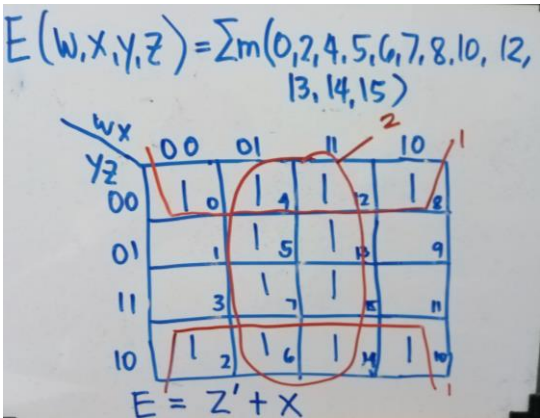 E(W,X,Y,Z) = Σm(0,2,4,5,6,7,8,10, 12,
13, 14, 15)
WX
YZ
00 01 11 10
2
1
00 1 0 1 4 1 12 1 8
01 1 1 5 1 13 9
11 3 1 7 1 15 11
10 1 2 1 6 1 14 1 10
1
E = Z' + X